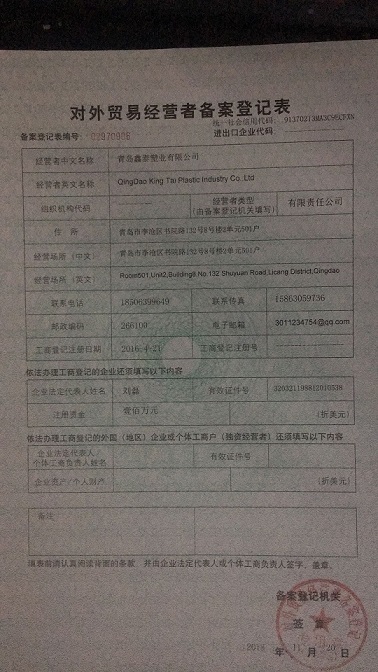 对外贸易经营者备案登记表
统一社会信用代码：
备案登记表编号：02970906
进出口企业代码：
经营者中文名称 青岛鑫泰塑业有限公司
经营者英文名称 QingDao King Tai Plastic Industry Co. Ltd
组织机构代码 经营者类型（由备案登记机关填写） 有限责任公司
住 所 青岛市李沧区书院路132号8号楼2单元501户
经营场所（中文） 青岛市李沧区书院路132号8号楼2单元501户
经营场所（英文） Room501,Unit2,Building8 No.132 Shuyuan Road,Licang District,Qingdao
联系电话 18506399649 联系传真 15863059736
邮政编码 266100 电子邮箱 3011234754@qq.com
工商登记注册日期 2016-4-21 工商登记注册号
依法办理工商登记的企业还须填写以下内容
企业法定代表人姓名 刘磊 有效证件号
注册资金 壹佰万元 （折美元）
依法办理工商登记的外国（地区）企业或个体工商户（独资经营者）还须填写以下内容
企业法定代表人/个体工商负责人姓名 有效证件号
企业资产/个人财产 （折美元）
备注
填表前请认真阅读背面的条款，并由企业法定代表人或个体工商负责人签字、盖章。
备案登记机关
签 章
年 11 月 20 日